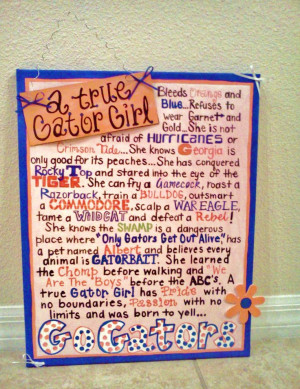 a true
Gator Girl
Bleeds Orange and
Blue...Refuses to
wear Garnet and
Gold...She is not
afraid of HURRICANES or
Crimson Tide...She knows Georgia is
only good for its peaches...She has conquered
Rocky Top and stared into the eye of the
TIGER. She can fry a Gamecock, roast a
Razorback, train a BULLDOG, outsmart
a COMMODORE, scalp a WAR EAGLE,
tame a WILDCAT and defeat a Rebel!
She knows the SWAMP is a dangerous
place where "Only Gators Get Out Alive," has
a pet named Albert and believes every
animal is GATORBAIT. She learned
the Chomp before walking and "We
Are The Boys" before the ABC's. A
true Gator Girl has Pride with
no boundaries, Passion with no
limits and was born to yell...
Go Gators